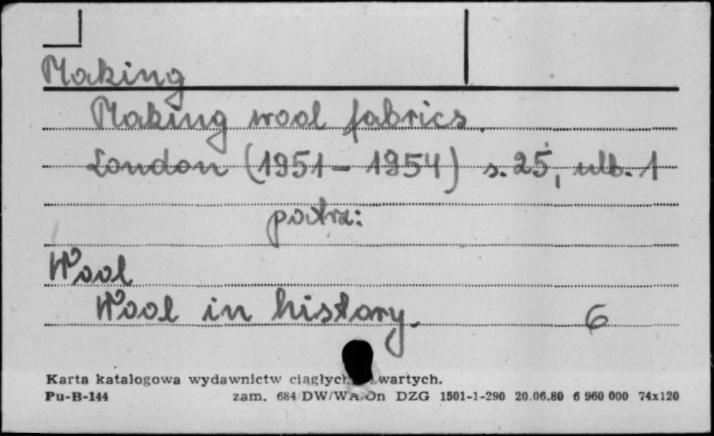 Making
Making wool fabrics.
London (1951 – 1954) s. 25, nlb. 1
patrz:
Wool
Wool in history.
6
Karta katalogowa wydawnictw ciągłych wartych.
Pu-B-144 zam. 684/DW/WA/On DZG 1501-1-290 20.06.80 6 960 000 74x120